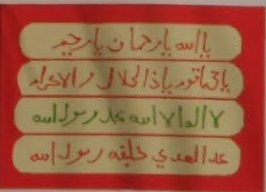 ياالله يارحمان يارحيم
ياحى ياقيوم ياذا الجلال والاكرام
لااله الا الله محمد رسول الله
محمد المهدي خليفه رسول الله